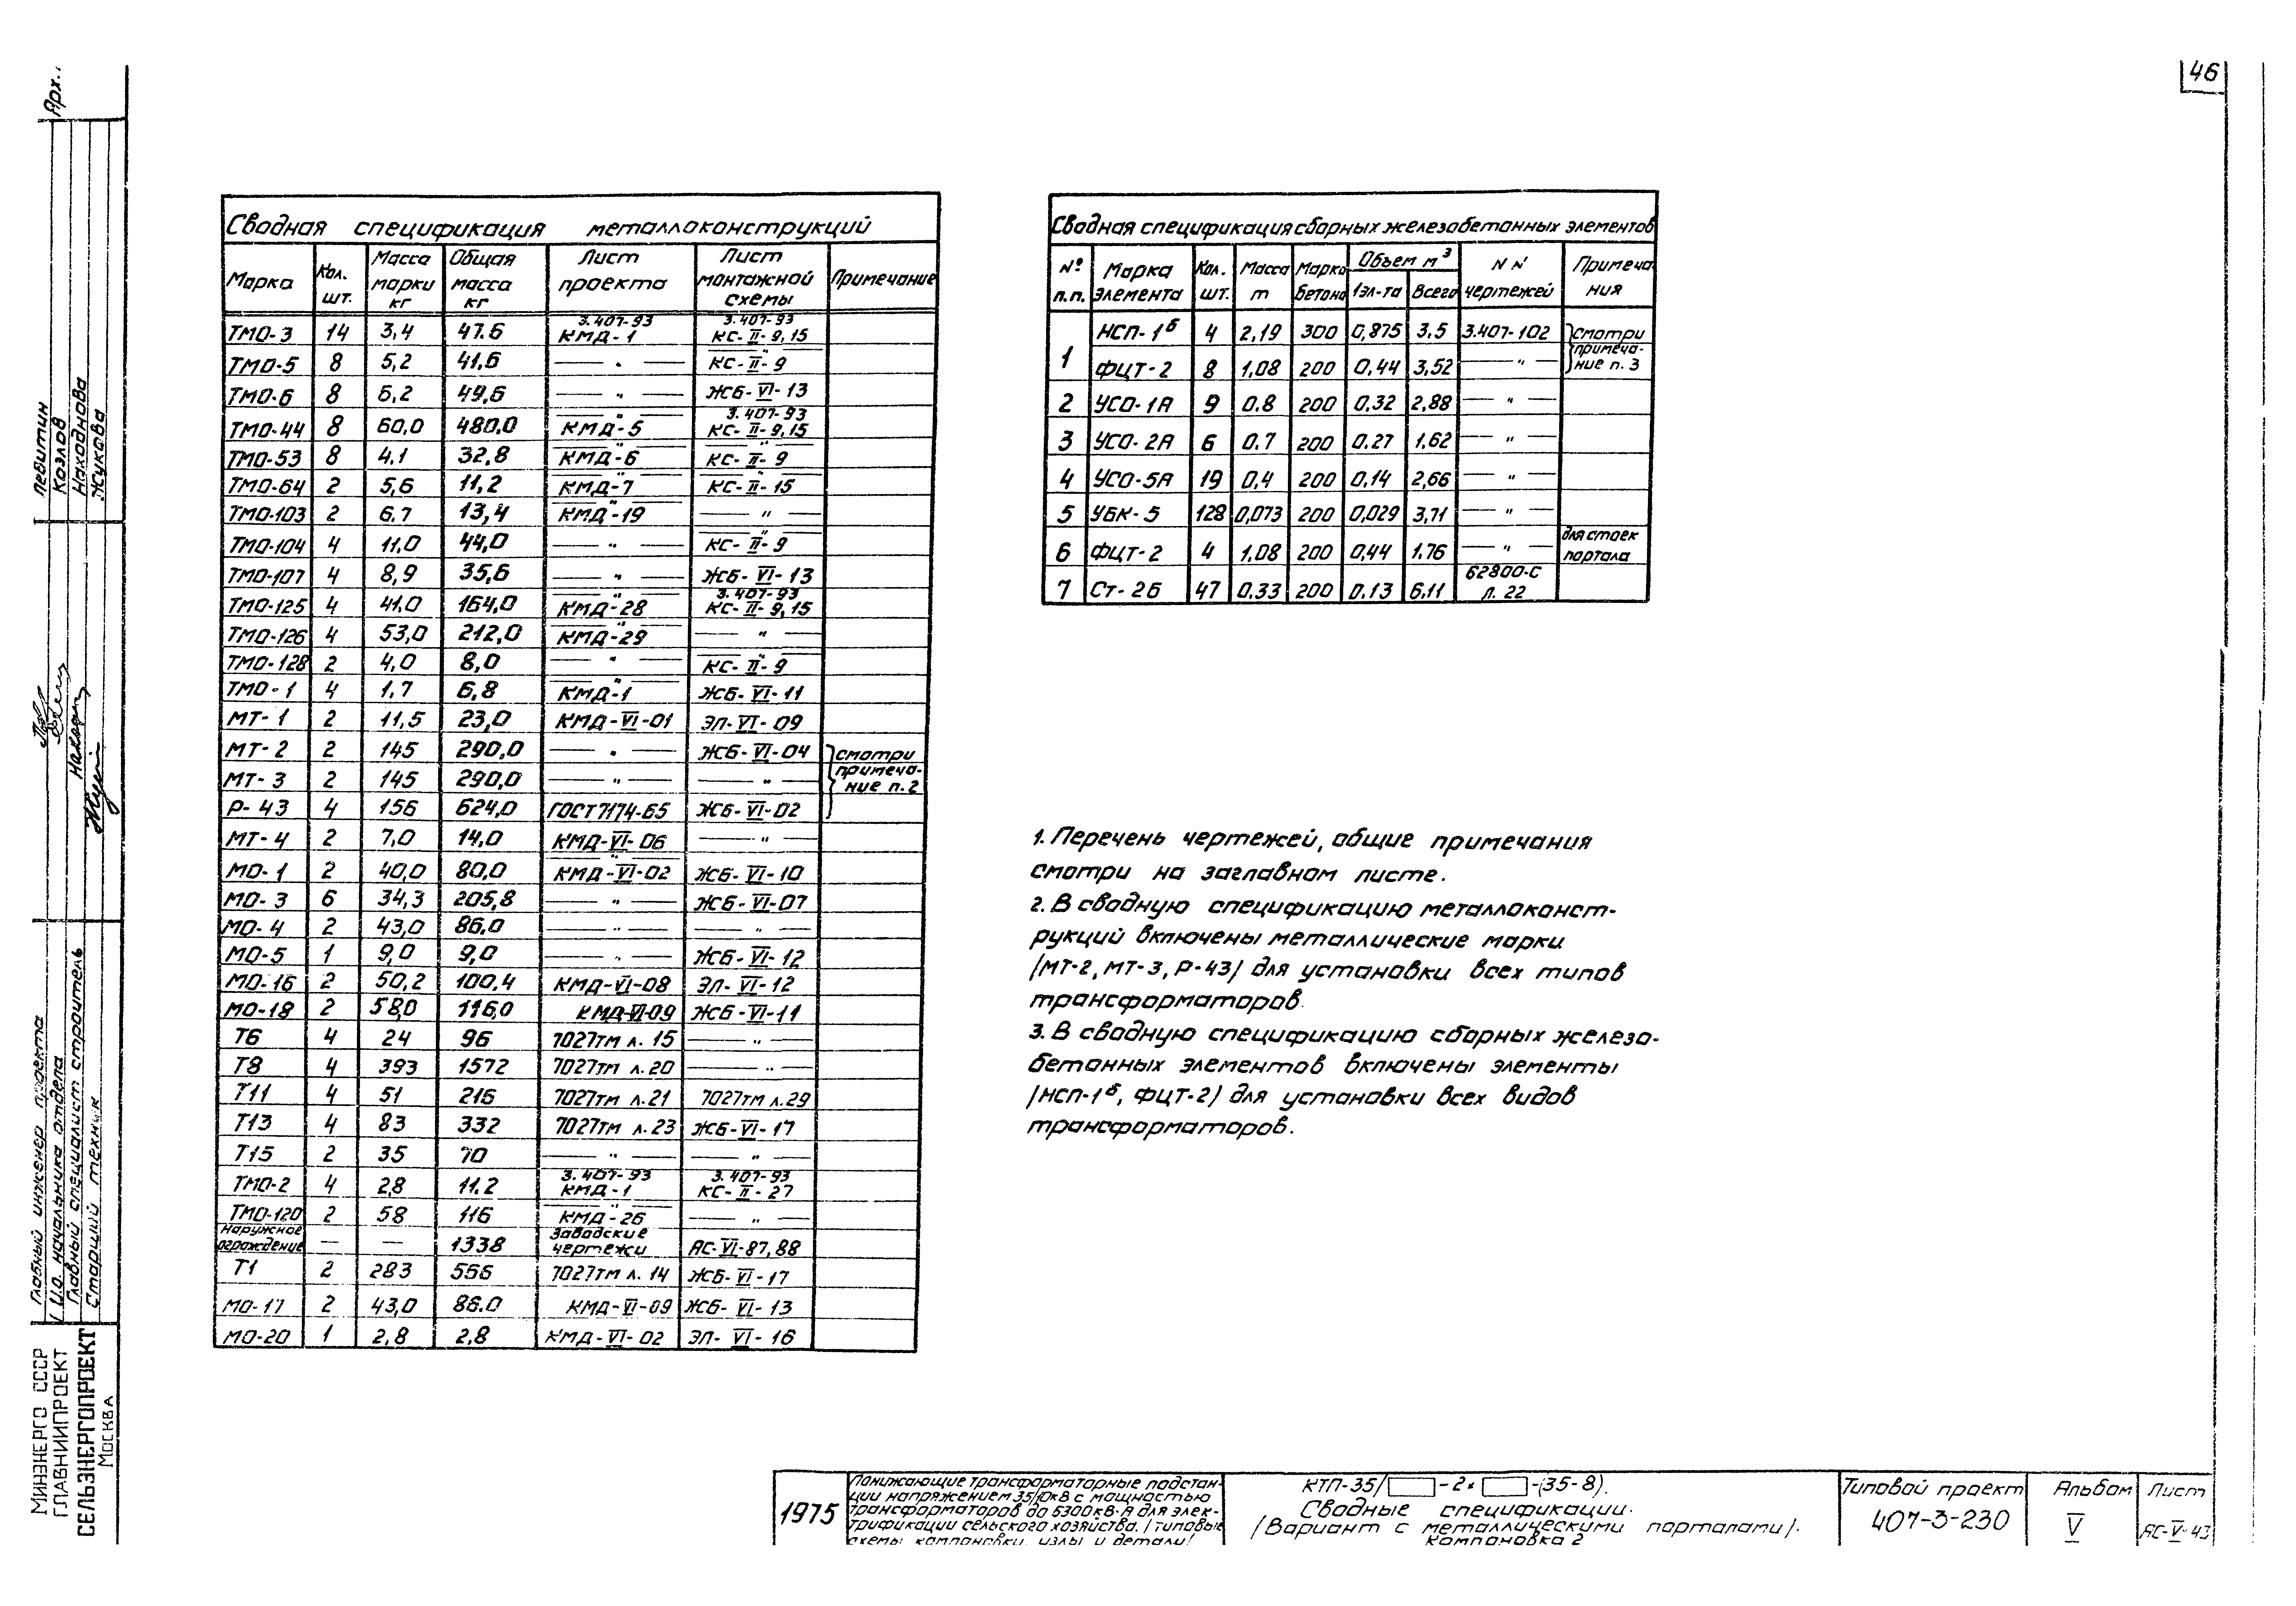 46
Арх.
Левитин
Козлов
Находнова
Жукова
Главный инженер проекта
И.О. начальника отдела
Главный специалист строитель
Старший техник
МИНЭНЕРГО СССР
ГЛАВНИИПРОЕКТ
СЕЛЬЭНЕРГОПРОЕКТ
МОСКВА
Сводная спецификация металлоконструкций
Марка Кол. шт. Масса марки кг Общая масса кг Лист проекта Лист монтажной схемы Примечание
ТМО-3 14 3,4 47.6 3.407-93 КМД-1 3.407-93 КС-II-9,15
ТМО-5 8 5,2 41,6 — " — КС-II-9
ТМО-6 8 6,2 49,6 — " — ЖСБ-VI-13
ТМО-44 8 60,0 480,0 — " — КМД-5 3.407-93 КС-II-9,15
ТМО-53 8 4.1 32,8 — " — КМД-6 — " — КС-II-9
ТМО-64 2 5,6 11,2 — " — КМД-7 — " — КС-II-15
ТМО-103 2 6.7 13,4 — " — КМД-19 — " —
ТМО-104 4 11,0 44,0 — " — — " — КС-II-9
ТМО-107 4 8,9 35,6 — " — ЖСБ-VI-13
ТМО-125 4 41,0 164,0 — " — КМД-28 3.407-93 КС-II-9,15
ТМО-126 4 53,0 212,0 — " — КМД-29 — " —
ТМО-128 2 4,0 8,0 — " — — " — КС-II-9
ТМО-1 4 1.7 6,8 — " — КМД-1 ЖСБ-VI-11
МТ-1 2 11,5 23,0 КМД-VI-01 ЭЛ-VI-09
МТ-2 2 145 290,0 — " — ЖСБ-VI-04 смотри
МТ-3 2 145 290,0 — " — — " — примеча-ние п.2
Р-43 4 156 624,0 ГОСТ7174-65 ЖСБ-VI-02
МТ-4 2 7,0 14,0 КМД-VI-06 — " —
МО-1 2 40,0 80,0 — " — КМД-VI-02 ЖСБ-VI-10
МО-3 6 34,3 205,8 — " — ЖСБ-VI-07
МО-4 2 43,0 86,0 — " — — " —
МО-5 1 9,0 9,0 — " — ЖСБ-VI-12
МО-16 2 50,2 100,4 КМД-VI-08 ЭЛ-VI-12
МО-18 2 58,0 116,0 КМД-VI-09 ЖСБ-VI-11
Т6 4 24 96 7027тм л.15 — " —
Т8 4 393 1572 7027тм л.20 — " —
Т11 4 51 216 7027тм л.21 7027тм л.29
Т13 4 83 332 7027тм л.23 ЖСБ-VI-17
Т15 2 35 70 — " — — " —
ТМО-2 4 2,8 11.2 3.407-93 КМД-1 3.407-93 КС-II-27
ТМО-120 2 58 116 — " — КМД-26 — " —
Наружное ограждение — — 1338 Заводские чертежи АС-VI-87,88
Т1 2 283 566 7027тм л.14 ЖСБ-VI-17
МО-17 2 43,0 86.0 КМД-VI-09 ЖСБ-VI-13
МО-20 1 2,8 2.8 КМД-VI-02 ЭЛ-VI-16
Сводная спецификация сборных железобетонных элементов
№ п.п. Марка элемента Кол. шт. Масса т Марка бетона Объем м³ 1эл-та Всего NN чертежей Примеча ния
1 НСП-1б 4 2,19 300 0,875 3,5 3.407-102 смотри
ФЦТ-2 8 1,08 200 0,44 3,52 — " — примеча-ние п.3
2 УСО-1А 9 0.8 200 0,32 2,88 — " —
3 УСО-2А 6 0.7 200 0.27 1.62 — " —
4 УСО-5А 19 0,4 200 0,14 2,66 — " —
5 УБК-5 128 0,073 200 0,029 3,71 — " —
6 ФЦТ-2 4 1,08 200 0,44 1.76 — " — для стоек портала
7 Ст-2б 47 0.33 200 0.13 6.11 62800-С Л. 22
1. Перечень чертежей, общие примечания
смотри на заглавном листе.
2. В сводную спецификацию металлоконст-
рукций включены металлические марки
/МТ-2, МТ-3, Р-43/ для установки всех типов
трансформаторов.
3. В сводную спецификацию сборных железо-
бетонных элементов включены элементы
/НСП-1б, ФЦТ-2/ для установки всех видов
трансформаторов.
1975
Понижающие трансформаторные подстан-
ции напряжением 35/10кВ с мощностью
трансформаторов до 6300кВ·А для элек-
трификации сельского хозяйства. /типовые
схемы компановки, узлы и детали/
КТП-35/ -2× -(35-8).
Сводные спецификации.
/Вариант с металлическими порталами/.
Компановка 2
Типовой проект
407-3-230
Альбом
V
Лист
АС-V-43